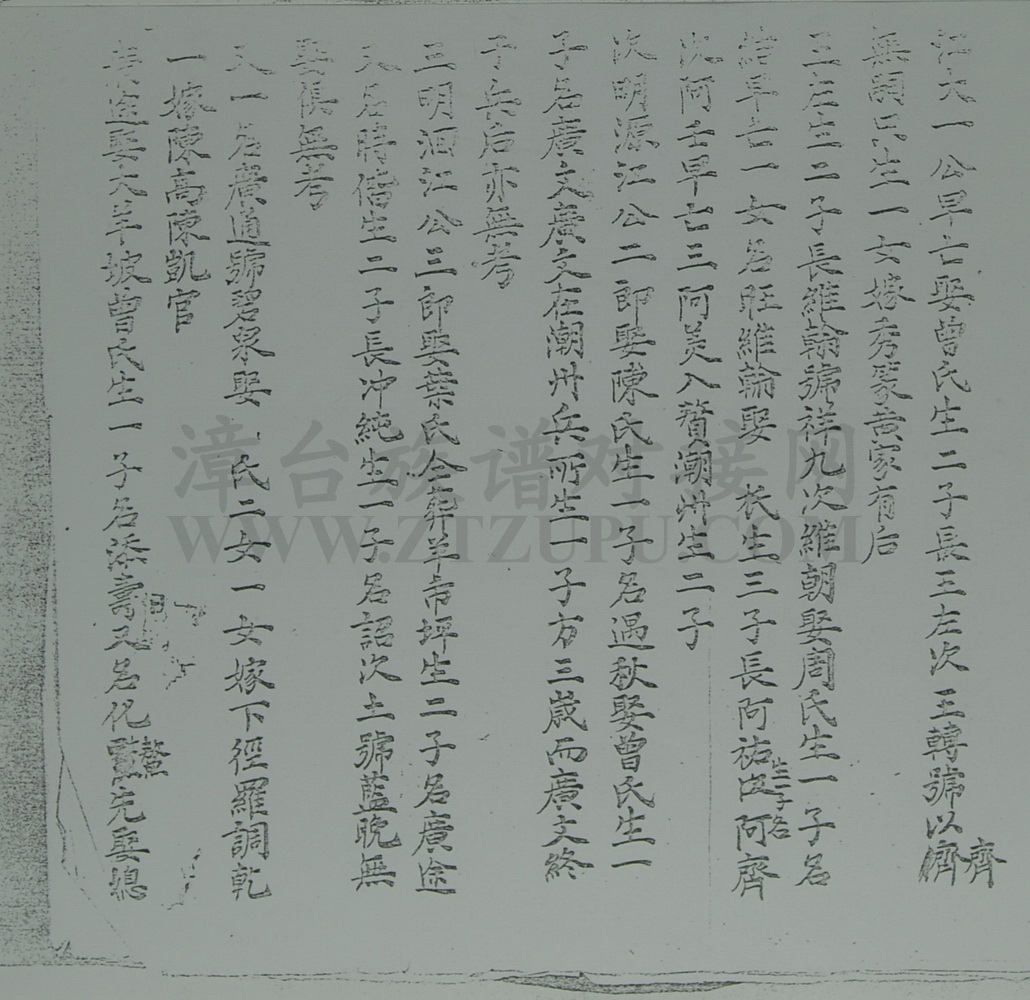 江大一公早亡娶曾氏生二子長三左次三轉號以濟齊
無嗣只生一女嫁秀篆黃家有后
三左生二子長維翰號祥九次維朝娶周氏生一子名
早亡一女名旺維翰娶 氏生三子長阿祐次阿齊
次阿壬早亡三阿美入贅潮州生二子
次明源江公二郎娶陳氏生一子名遇秋娶曾氏生一
子名廣文廣文在潮州兵所生一子方三歲而廣文終
于兵后亦無考
三明洄江公三郎娶葉氏仝葬羊坪生二子名廣途
又名時偕生二子長冲純生一子名詔次土號藍晚無
娶俱無考
又一名廣通號碧泉娶 氏二女一女嫁下徑羅調乾
一嫁陳高陳凱官
廣途娶大羊坡曾氏生一子名添壽又名化鰲先娶媳
漳台族谱对接网
WWW.ZTZUPU.COM